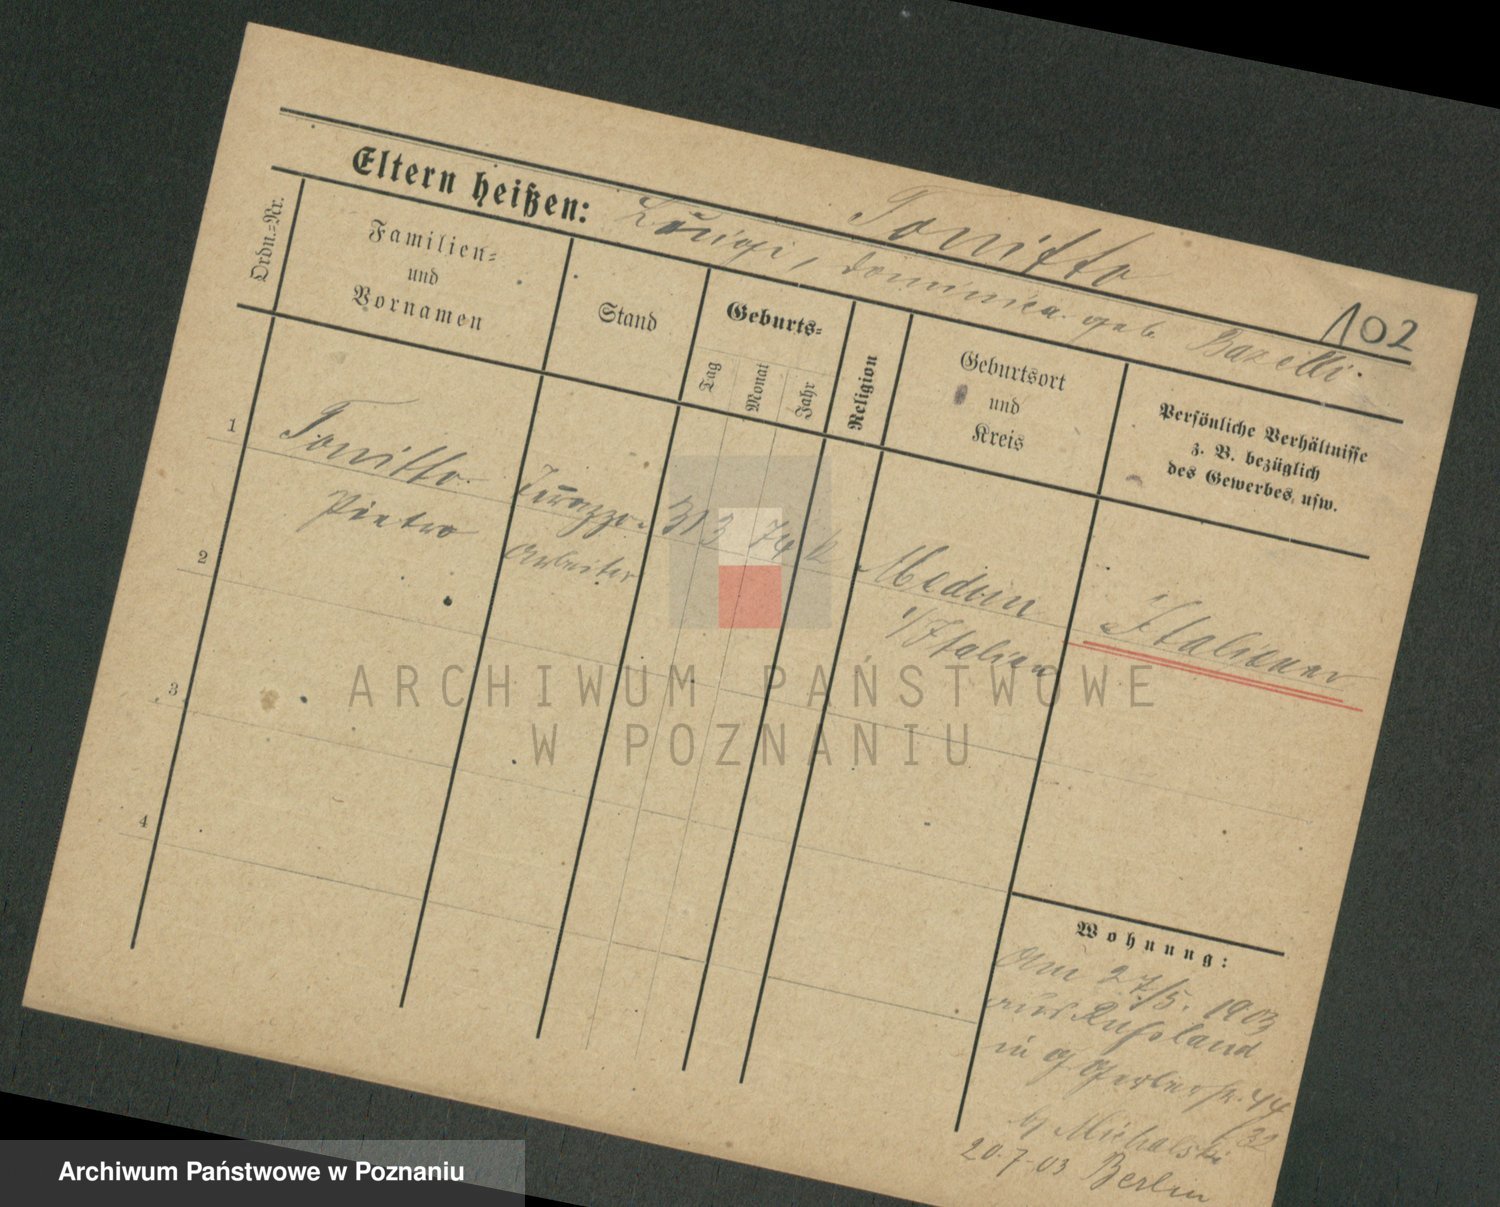 Tonitto
102
Eltern heißen: Luigi, Dominica geb. Bazelli.
Ordn.=Nr.
Familien=
und
Vornamen
Stand
Geburts=
Tag
Monat
Jahr
Religion
Geburtsort
und
Kreis
Persönliche Verhältnisse
z. B. bezüglich
des Gewerbes, usw.
1
Tonitto
Pietro
Arbeiter
3 74 k
Medun
i/Italien
Italiener
2
3
4
Wohnung:
Am 27/5. 1903
aus Russland
in Gerberstr. 44
32
b/ Michalski
20.7.03 Berlin
ARCHIWUM PAŃSTWOWE
W POZNANIU
Archiwum Państwowe w Poznaniu